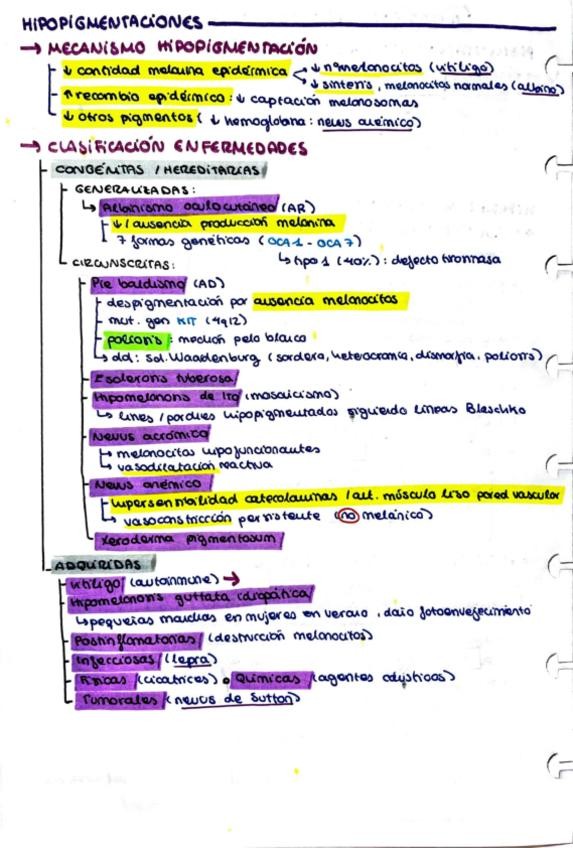 HIPOPIGMENTACIONES
→ MECANISMO HIPOPIGMENTACIÓN
↓ cantidad melanina epidérmica < ↓ nº melanocitos (vitíligo)
↓ síntesis, melanocitos normales (albino)
↑ recambio epidérmico: ↓ captación melanosomas
↓ otros pigmentos (↓ hemoglobina: nevus anémico)
→ CLASIFICACIÓN ENFERMEDADES
CONGÉNITAS / HEREDITARIAS
GENERALIZADAS:
↳ Albinismo oculocutáneo (AR)
↓ / ausencia producción melanina
7 formas genéticas (OCA1 - OCA7)
↳ tipo 1 (40%): defecto tirosinasa
CIRCUNSCRITAS:
Piebaldismo (AD)
despigmentación por ausencia melanocitos
mut. gen KIT (4q12)
poliosis: mechón pelo blanco
dd: sd. Waardenburg (sordera, heterocromía, dismorfia, poliosis)
Esclerosis tuberosa
Hipomelanosis de Ito (mosaicismo)
↳ líneas / parches hipopigmentados siguiendo líneas Blaschko
Nevus acrómico
melanocitos hipofuncionantes
vasodilatación reactiva
Nevus anémico
hipersensibilidad catecolaminas / alt. músculo liso pared vascular
vasoconstricción persistente (no melánico)
Xeroderma pigmentosum
ADQUIRIDAS
Vitíligo (autoinmune) →
Hipomelanosis guttata idiopática
↳ pequeñas manchas en mujeres en verano, daño fotoenvejecimiento
Postinflamatorias (destrucción melanocitos)
Infecciosas (lepra)
Físicas (cicatrices) o Químicas (agentes cáusticos)
Tumorales (nevus de Sutton)